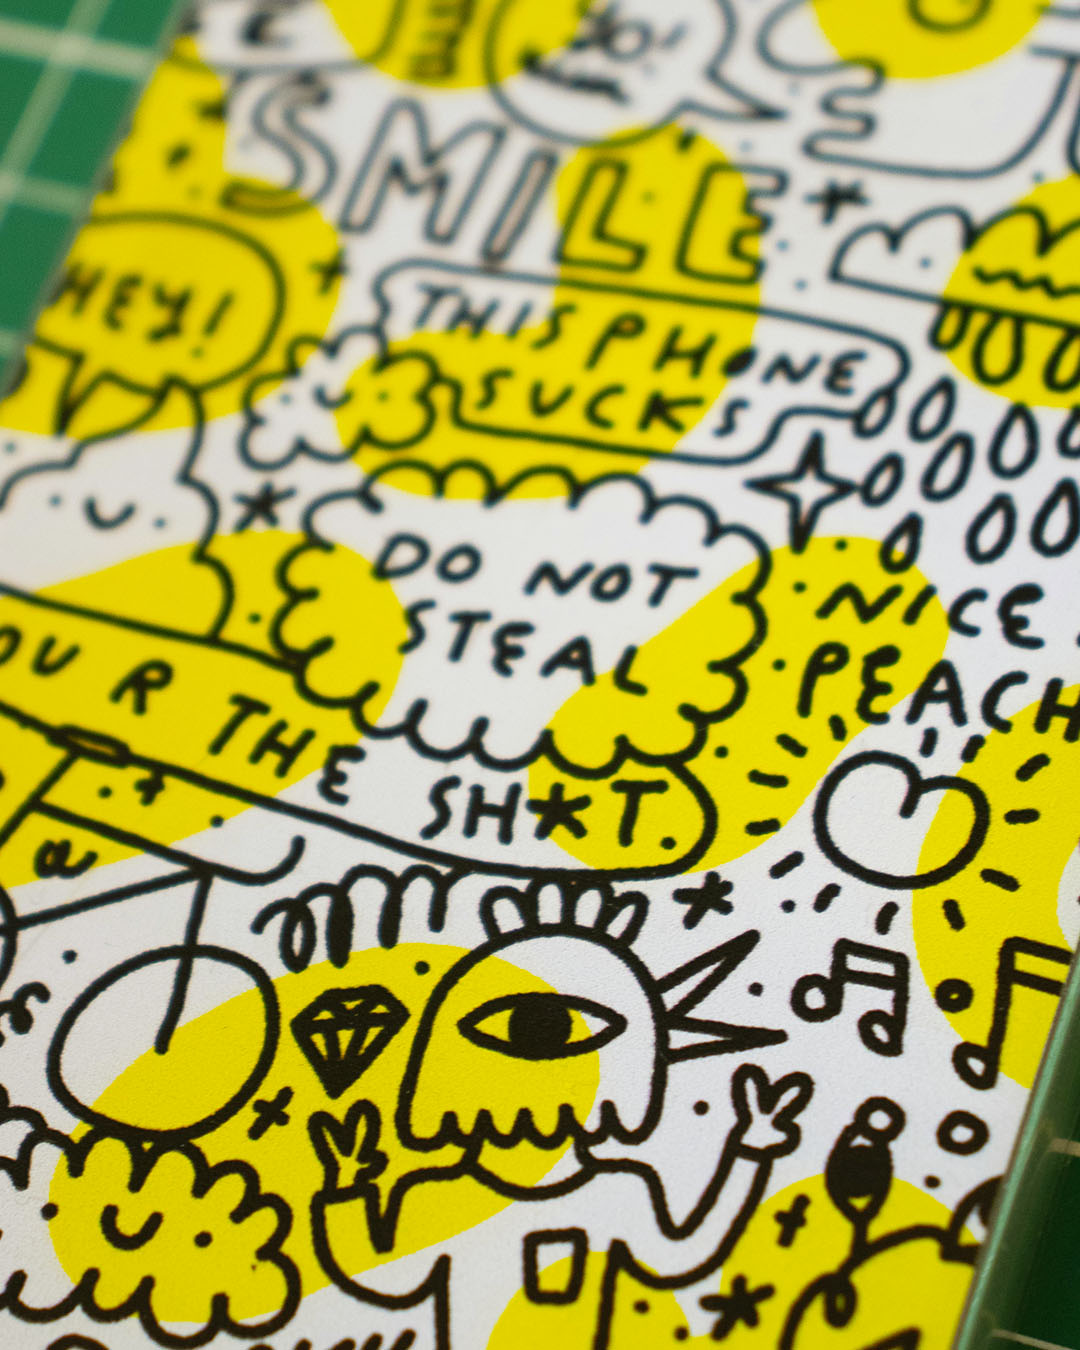 YO!
SMILE
HEY!
THIS PHONE
SUCKS
DO NOT
STEAL
NICE
PEACH
OU R THE SH*T.